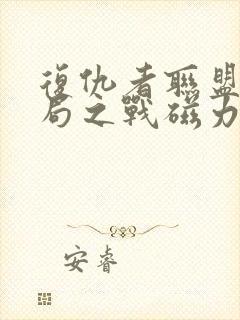 復仇者聯盟
局之戰磁力
安睿